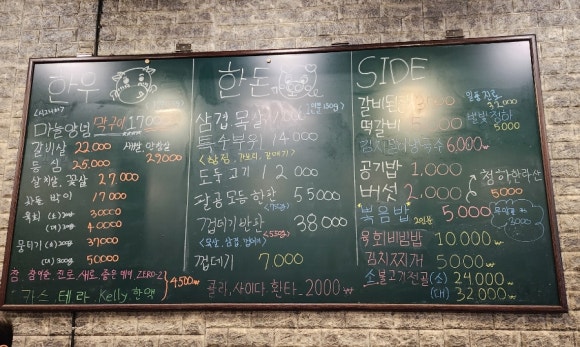 한우
마늘양념 막구이 17000
갈비살 22.000
29000
등심 25000
살치살, 꽃살 27.000
차돌박이 17000
육회 (소) 30000
(대) 40000
뭉티기 (소) 37000
(대) 50000
참, 참이슬, 진로, 새로, 좋은데이 ZERO
카스. 테라. Kelly. 한맥
4500₩
한돈
삼겹 목살
특수부위 14.000
도둑고기 12000
달콤 모듬 한판 55000
껍데기 반판 38.000
<목살, 삼겹, 껍데기>
껍데기 7.000
콜라, 사이다, 환타 - 2000₩
SIDE
갈비
떡갈비 5.000
6.000₩
공기밥 1.000
버섯 2.000
볶음밥 2인분 5.000
육회비빔밥 10.000₩
김치찌개 5000₩
소불고기전골 (소) 24.000₩
(대) 32.000₩
별빛청하
5.000
청하 한라산
5.000